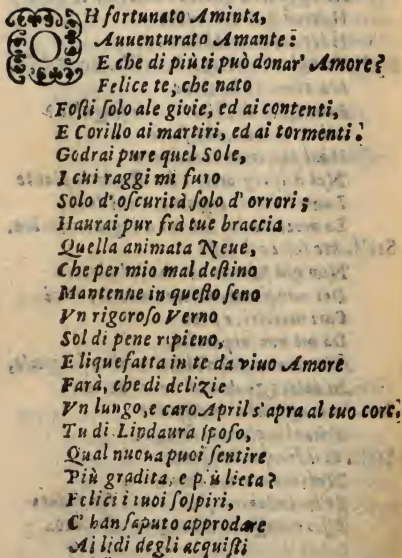 OH fortunato Aminta,
Auuenturato Amante:
E che di più ti può donar' Amore?
Felice te, che nato
Fosti solo ale gioie, ed ai contenti,
E Corillo ai martiri, ed ai tormenti.
Godrai pure quel Sole,
I cui raggi mi furo
Solo d'oscurità solo d'orrori;
Haurai pur frà tue braccia
Quella animata Neue,
Che per mio mal destino
Mantenne in questo seno
Vn rigoroso Verno
Sol di pene ripieno,
E liquefatta in te da viuo Amore
Farà, che di delizie
Vn lungo, e caro April s'apra al tuo core,
Tu di Lindaura sposo,
Qual nuoua puoi sentire
Più gradita, e più lieta?
Felici i tuoi sospiri,
C'han saputo approdare
Ai lidi degli acquisti